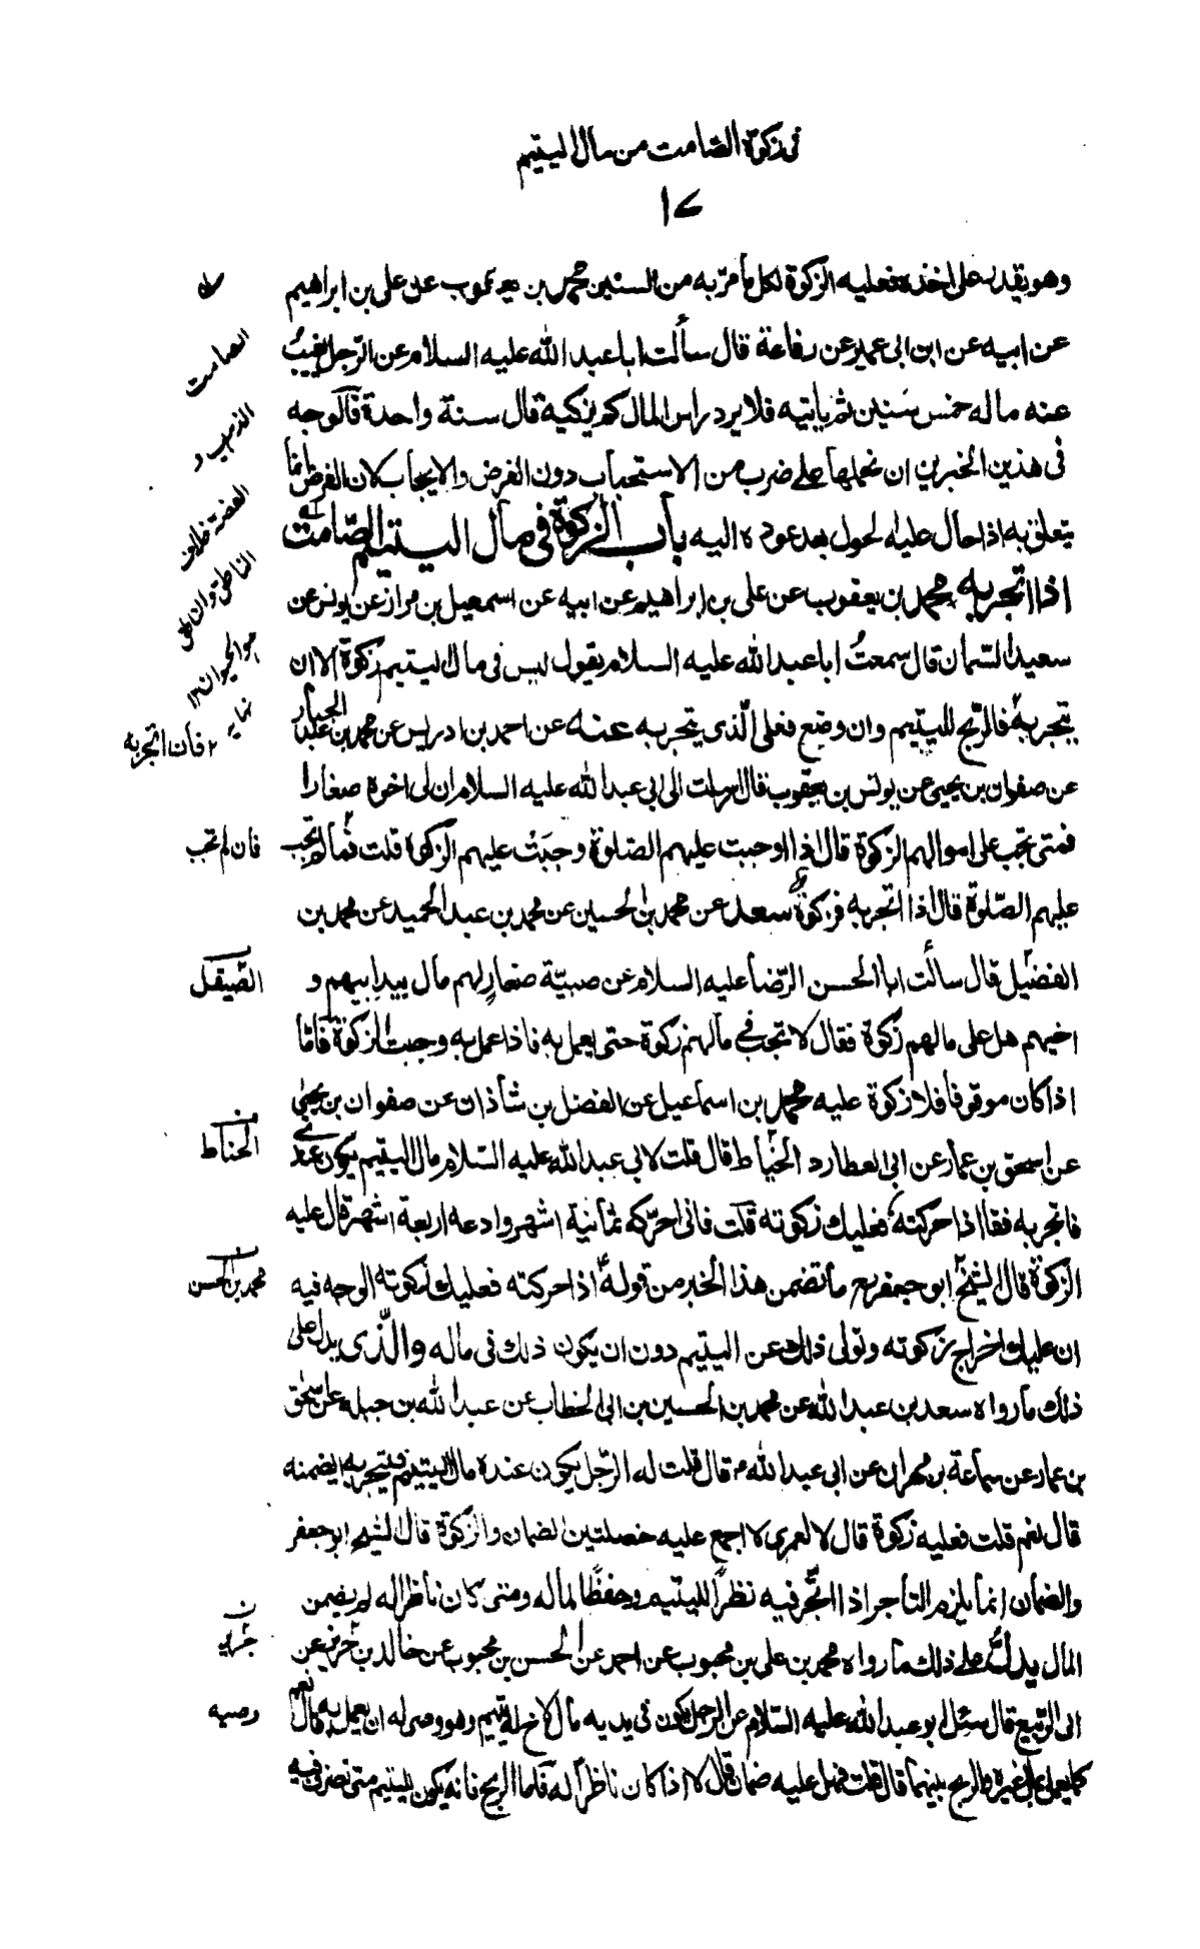 فى زكوة الصامت من مال اليتيم
١٧
وهو يقدر على اخذه فعليه الزكوة لكل ما مرّ به من السنين محمد بن يعقوب عن على بن ابراهيم
عن ابيه عن ابن ابى عمير عن رفاعة قال سألت ابا عبد الله عليه السلام عن الرّجل يغيبُ
عنه ماله خمس سَنين ثم ياتيه فلا يرد راس المال كم يزكيه قال سنة واحدة فالوجه
فى هذين الخبرين ان نحملها على ضرب من الاستحباب دون الفرض والايجاب لان الفرض انما
يتعلق به اذا حال عليه الحول بعد عوده اليه باب الزكوة فى مال اليتيم الصّامت
اذا اتجر به محمد بن يعقوب عن على بن ابراهيم عن ابيه عن اسمعيل بن مرار عن يونس عن
سعيد السّمان قال سمعتُ ابا عبد الله عليه السلام يقول ليس فى مال اليتيم زكوة الا ان
يتجر به فالرّبح لليتيم وان وضع فعلى الّذى يتجر به عنه عن احمد بن ادريس عن محمد بن عبد الجبار
عن صفوان بن يحيى عن يونس بن يعقوب قال ارسلت الى ابى عبد الله عليه السلام ان لى اخوة صغارا
فمتى تجب على اموالهم الزكوة قال اذا اوجبت عليهم الصّلوة وجبَتْ عليهم الزكوة قلت فما لم تجب
عليهم الصّلوة قال اذا اتجر به فزكوة سعد عن محمد بن الحسين عن محمد بن عبد الحميد عن محمد بن
الفضيل قال سالت ابا الحسن الرّضا عليه السلام عن صبيّة صغارٍ لهم مال بيد ابيهم و
اخيهم هل على مالهم زكوة فقال لا تجب فى مالهم زكوة حتى يعمل به فاذا عمل به وجبت الزكوة فامّا
اذا كان موقوفا فلا زكوة عليه محمد بن اسماعيل عن الفضل بن شاذان عن صفوان بن يحيى
عن اسحق بن عمار عن ابى العطارد الخيّاط قال قلت لابى عبد الله عليه السّلام مال اليتيم يكون عندى
فاتجر به فقا اذا حركته فعليك زكوته قلت فانى احرّكه ثمانية اشهر وادعه اربعة اشهر قال عليه
الزكوة قال الشيخ ابو جعفر مع ما تضمن هذا الخبر من قوله اذا حركته فعليك زكوته الوجه فيه
ان عليك اخراج زكوته وتولى ذلك عن اليتيم دون ان يكون ذلك فى ماله والّذى يدل على
ذلك ما رواه سعد بن عبد الله عن محمد بن الحسين بن ابى الخطاب عن عبد الله بن جبلة عن اسحق
بن عمار عن سماعة بن مهران عن ابى عبد الله ع قال قلت له الرّجل يكون عنده مال اليتيم فيتجر به ايضمنه
قال نعم قلت فعليه زكوة قال لا لعمرى لا اجمع عليه خصلتين الضمان والزكوة قال الشيخ ابو جعفر
والضمان انما يلزم التاجر اذا اتّجر فيه نظراً لليتيم وحفظًا لماله ومتى كان ناظرا له لم يضمن
المال يدلُّ على ذلك ما رواه محمد بن على بن محبوب عن احمد عن الحسن بن محبوب عن خالد بن جرير عن
ابى الرّبيع قال سئل ابو عبد الله عليه السّلام عن الرجل يكون فى يديه مال لاخ له يتيم وهو وصى له ان يعمل به قال نعم
كما يعمل بمال غيره والربح بينهما قال قلت فهل عليه ضمان قال لا اذا كان ناظراً له فاما الربح فانه يكون لليتيم متى تصرف فيه
الصامت
الذهب و
الفضة خلاف
الناطق وان
هو الحيوان ١٢
نهايه
٢ فان اتجر به
فان لم تجب
الصّيقل
الحناط
محمد بن الحسن
جرير
وصيه